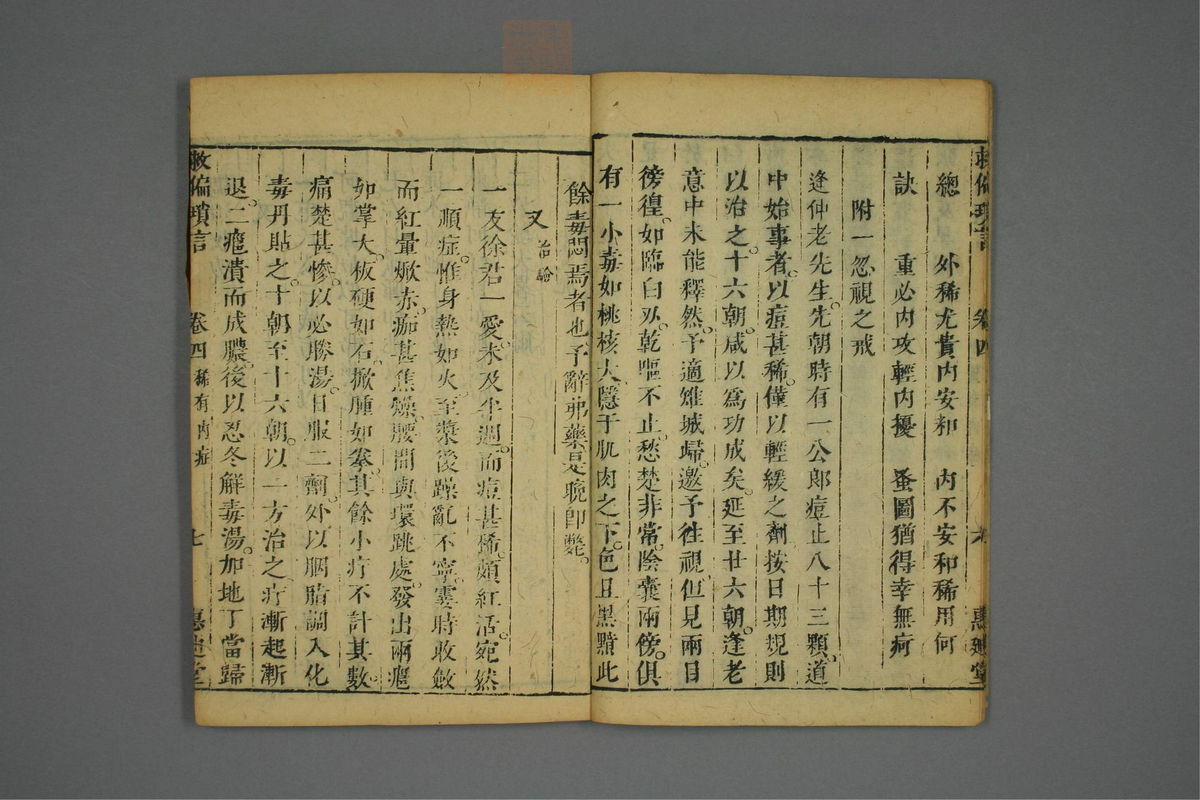 救偏瑣言 卷四 惠迪堂
總 外稀尤貴內安和 內不安和稀用何
訣 重必內攻輕內擾 蚤圖猶得幸無疴
附一忽視之戒
逢仲老先生先朝時有一公郎痘止八十三顆道
中始事者以痘甚稀僅以輕緩之劑按日期規則
以治之十六朝咸以為功成矣延至廿六朝逢老
意中未能釋然予適雉城歸邀予徃視但見兩目
徬徨如臨白刃乾嘔不止愁楚非常陰囊兩傍俱
有一小毒如桃核大隱于肌肉之下色且黑黯此
餘毒悶焉者也予辭弗藥是晚卽斃
又 治驗
一友徐君一愛未及半週而痘甚稀頗紅活宛然
一順症惟身熱如火至漿後躁亂不寧霎時收斂
而紅暈焮赤痂甚焦燥腰間與環跳處發出兩癰
如掌大板硬如石掀腫如拳其餘小疔不計其數
痛楚甚慘以必勝湯日服二劑外以胭脂調入化
毒丹貼之十朝至十六朝以一方治之疔漸起漸
退二癰潰而成膿後以忍冬解毒湯加地丁當歸
救偏瑣言 卷四 稀有內症 七 惠迪堂